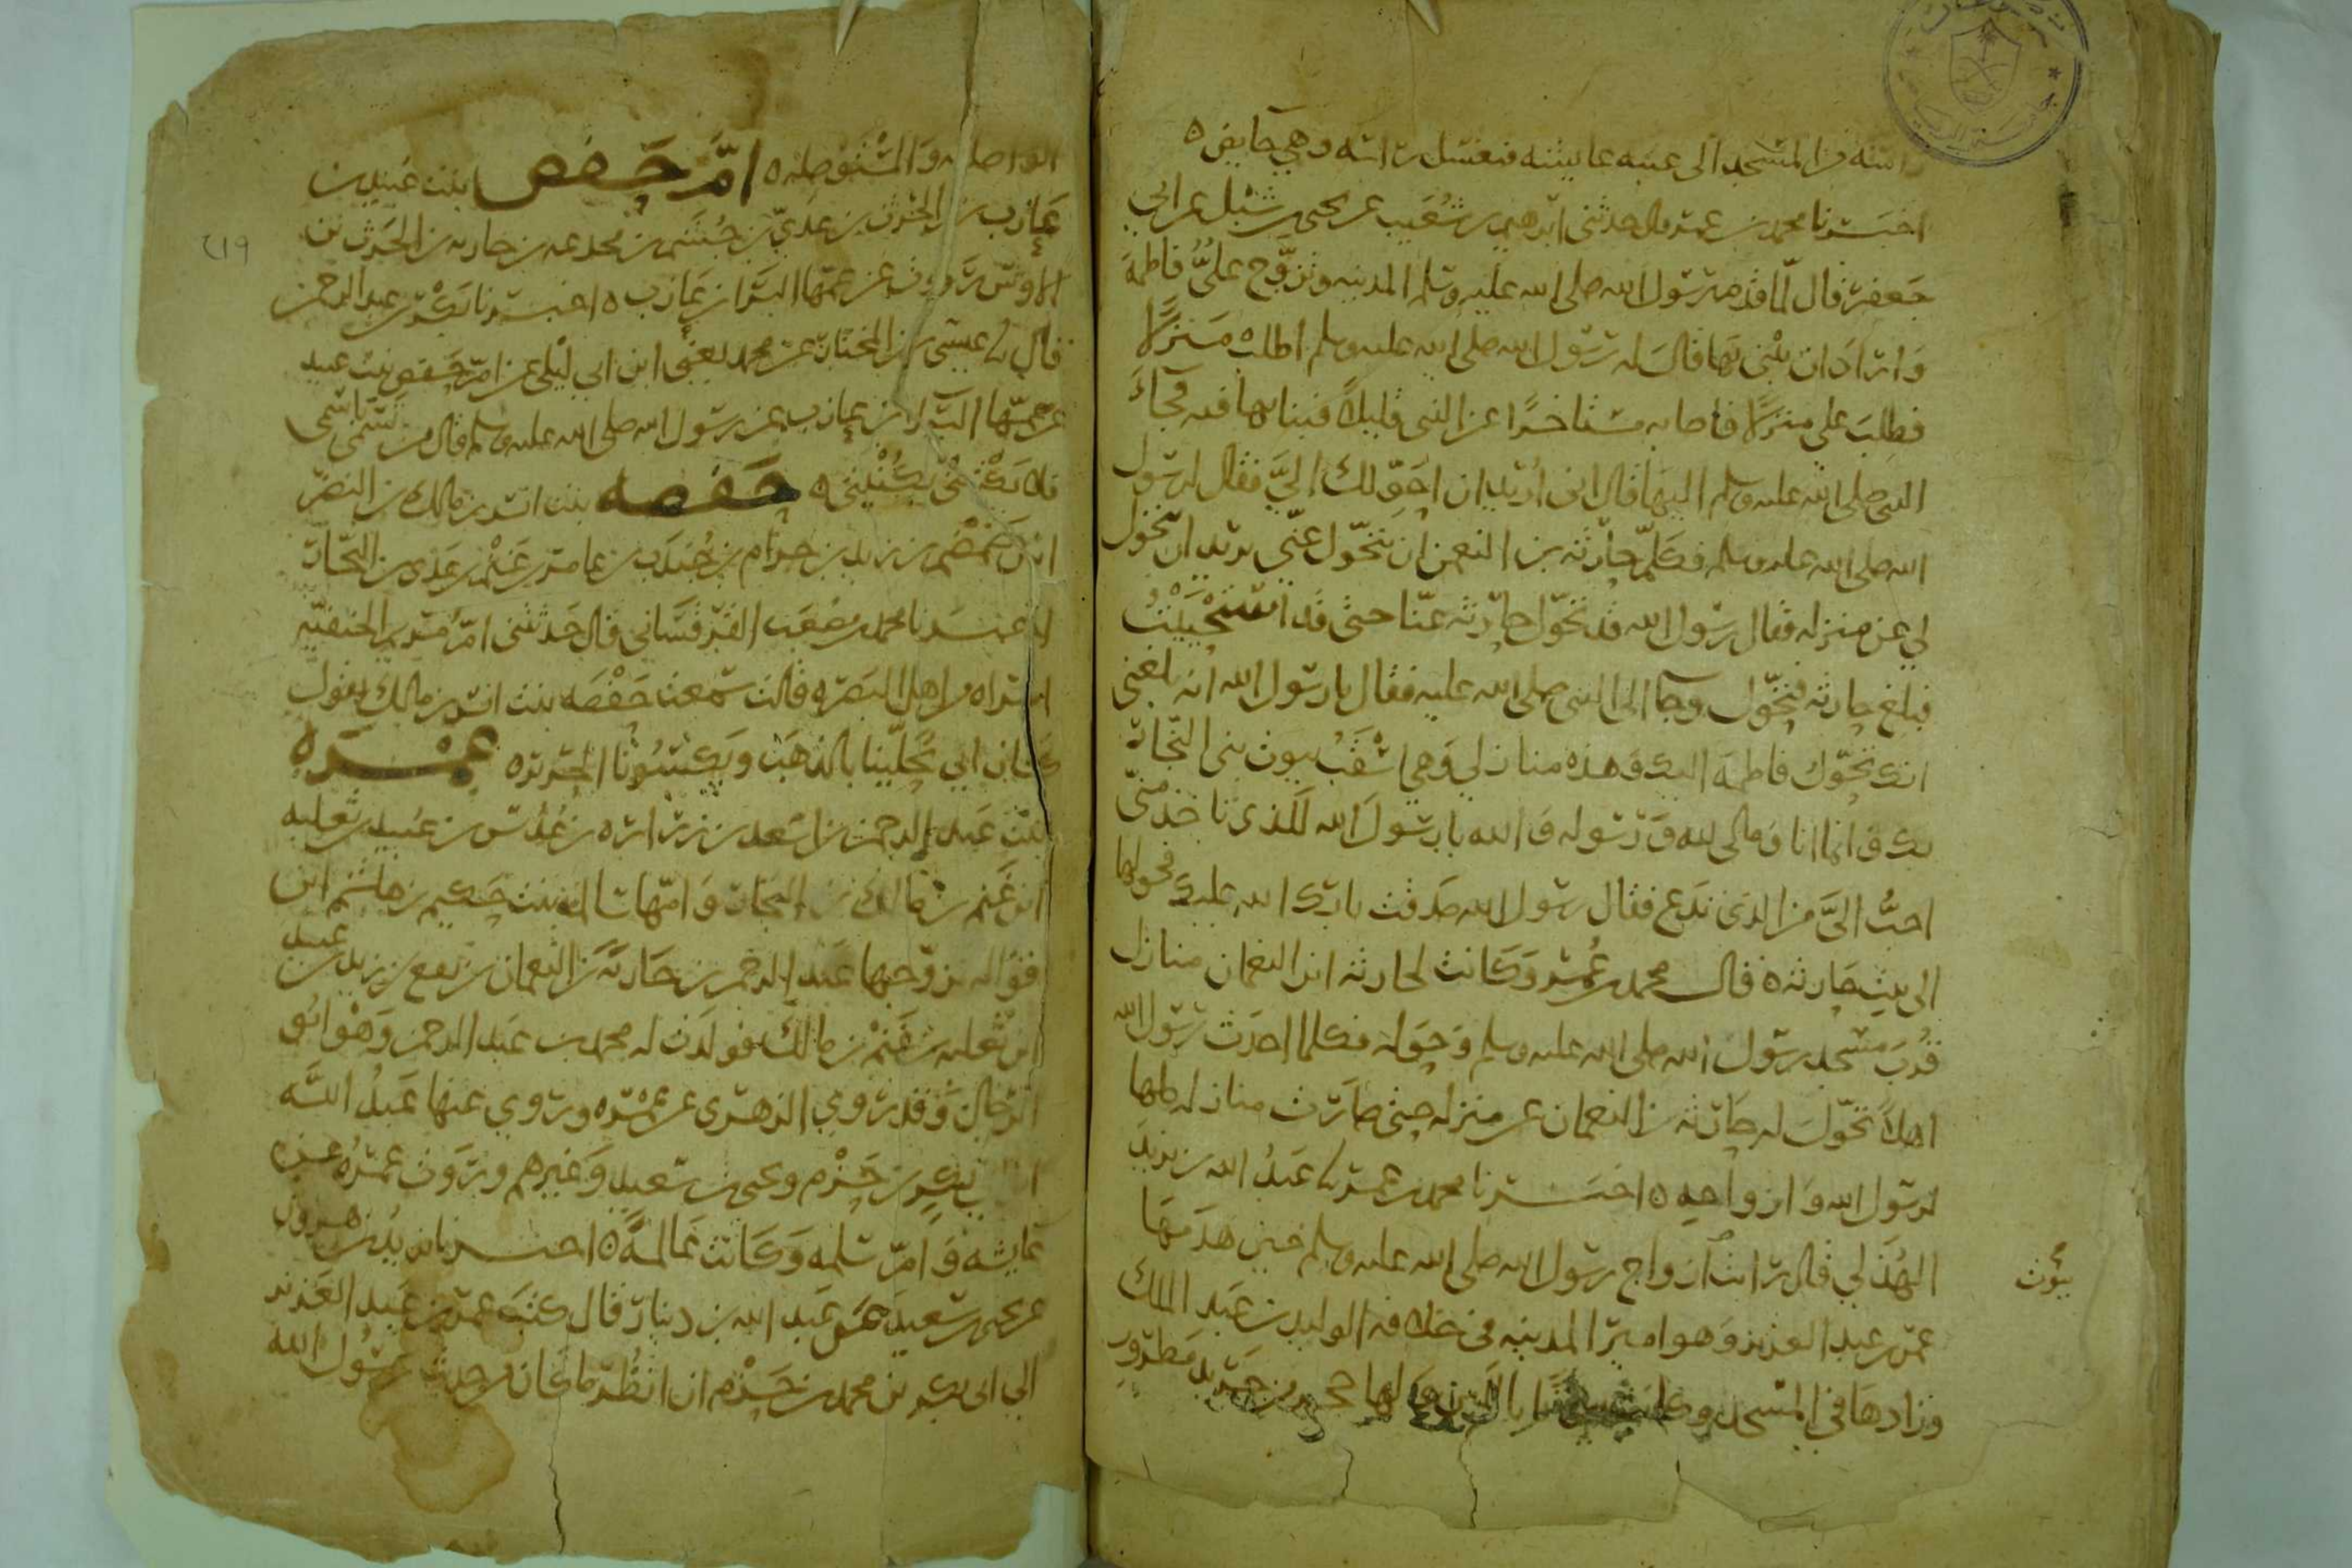 راسه من المسجد الى عتبه عايشه فتغسل راسه وهي حايض ه
اخبرنا محمد بن عمر قال حدثني ابرهيم بن شعيب عن يحيى بن شبل عن ابي
جعفر قال لما قدم رسول الله صلى الله عليه وسلم المدينه وتزوج علي فاطمة
وَاراد ان يبني بها قال له رسول الله صلى الله عليه وسلم اطلب منزلا
فطلب علي منزلا فاصابه مستاخرا عن النبي قليلا فبنا بها فيه فجاء
النبي صلى الله عليه وسلم اليها فقال اني اريد ان احولك اليّ فقال لرسول
الله صلى الله عليه وسلم فكلم حارثه بن النعمن ان يتحول عني يريد ان يتحول
لي عن منزله فقال رسول الله قد تحول حارثه عنا حتى قد استحييت
فبلغ حارثه فتحول وجا الى النبي صلى الله عليه فقال يا رسول الله انه بلغني
انك تحول فاطمه اليك وهذه منازلي وهي اسقب بيوت بني النجار
بك وانما انا ومالي لله ورسوله والله يا رسول الله للذي تاخذ مني
احبُّ اليَّ من الذي تدع فقال رسول الله صدقت بارك الله عليك فحولها
الى بيت حارثه ه قال محمد بن عمر وكانت لحارثه ابن النعمان منازل
قرب مسجد رسول الله صلى الله عليه وسلم وحوله فكلما احدث رسول الله
اهلا تحول له حارثه بن النعمان عن منزله حتى صارت منازله كلها
لرسول الله وازواجه ه اخبرنا محمد بن عمر نا عبد الله بن يزيد
الهذلي قال رايت ازواج رسول الله صلى الله عليه وسلم حين هدمها
بيوت
عمر بن عبد العزيز وهو امير المدينه في خلافه الوليد بن عبد الملك
وزادها في المسجد وكانت بيوتا باللبن ولها حجر من جريد مطرور
٢١٩
الواصله والمستوصله ه امّ حفص بنت عبيد بن
عازب بن الحرث بن عدي بن جشم بن مجدعه بن حارثه بن الحرث بن
الاوس تروي عن عمها البرا بن عازب ه اخبرنا بكر بن عبد الرحمن
قال نا عيسى بن المختار عن محمد يعني ابن ابي ليلى عن ام حفص بنت عبيد
عن عمها البرا بن عازب عن رسول الله صلى الله عليه وسلم قال من تسمى باسمي
فلا يكتني بكنيتي ه حفصه بنت انس بن مالك بن النضر
ابن ضمضم بن زيد بن حرام بن جندب بن عامر بن غنم بن عدي بن النجار
اخبرنا محمد بن مصعب القرقساني قال حدثتني ام الحنفيه
امراه من اهل البصره قالت سمعت حفصه بنت انس بن مالك تقول
كان ابي يحلينا بالذهب ويكسونا الحرير ه عمره
بنت عبد الرحمن بن اسعد بن زراره بن عدس بن عبيد بن ثعلبه
ابن غنم بن مالك بن النجار وامها سالمه بنت حكيم بن هاشم ابن
قواله تزوجها عبد الرحمن بن حارثة بن النعمان بن نفع بن زيد بن عبيد
ابن ثعلبه بن غنم بن مالك فولدت له محمد بن عبد الرحمن وهو ابو
الرجال وقد روي الزهري عن عمره وروي عنها عبد الله
بن بكر بن حزم ويحيى بن سعيد وغيرهم وروت عمره عن
عايشه وام سلمه وكانت عالمة ه اخبرنا يزيد بن هرون
عن يحيى بن سعيد عن عبد الله بن دينار قال كتب عمر بن عبد العزيز
الى ابي بكر بن محمد بن حزم ان انظر ما كان من حديث رسول الله